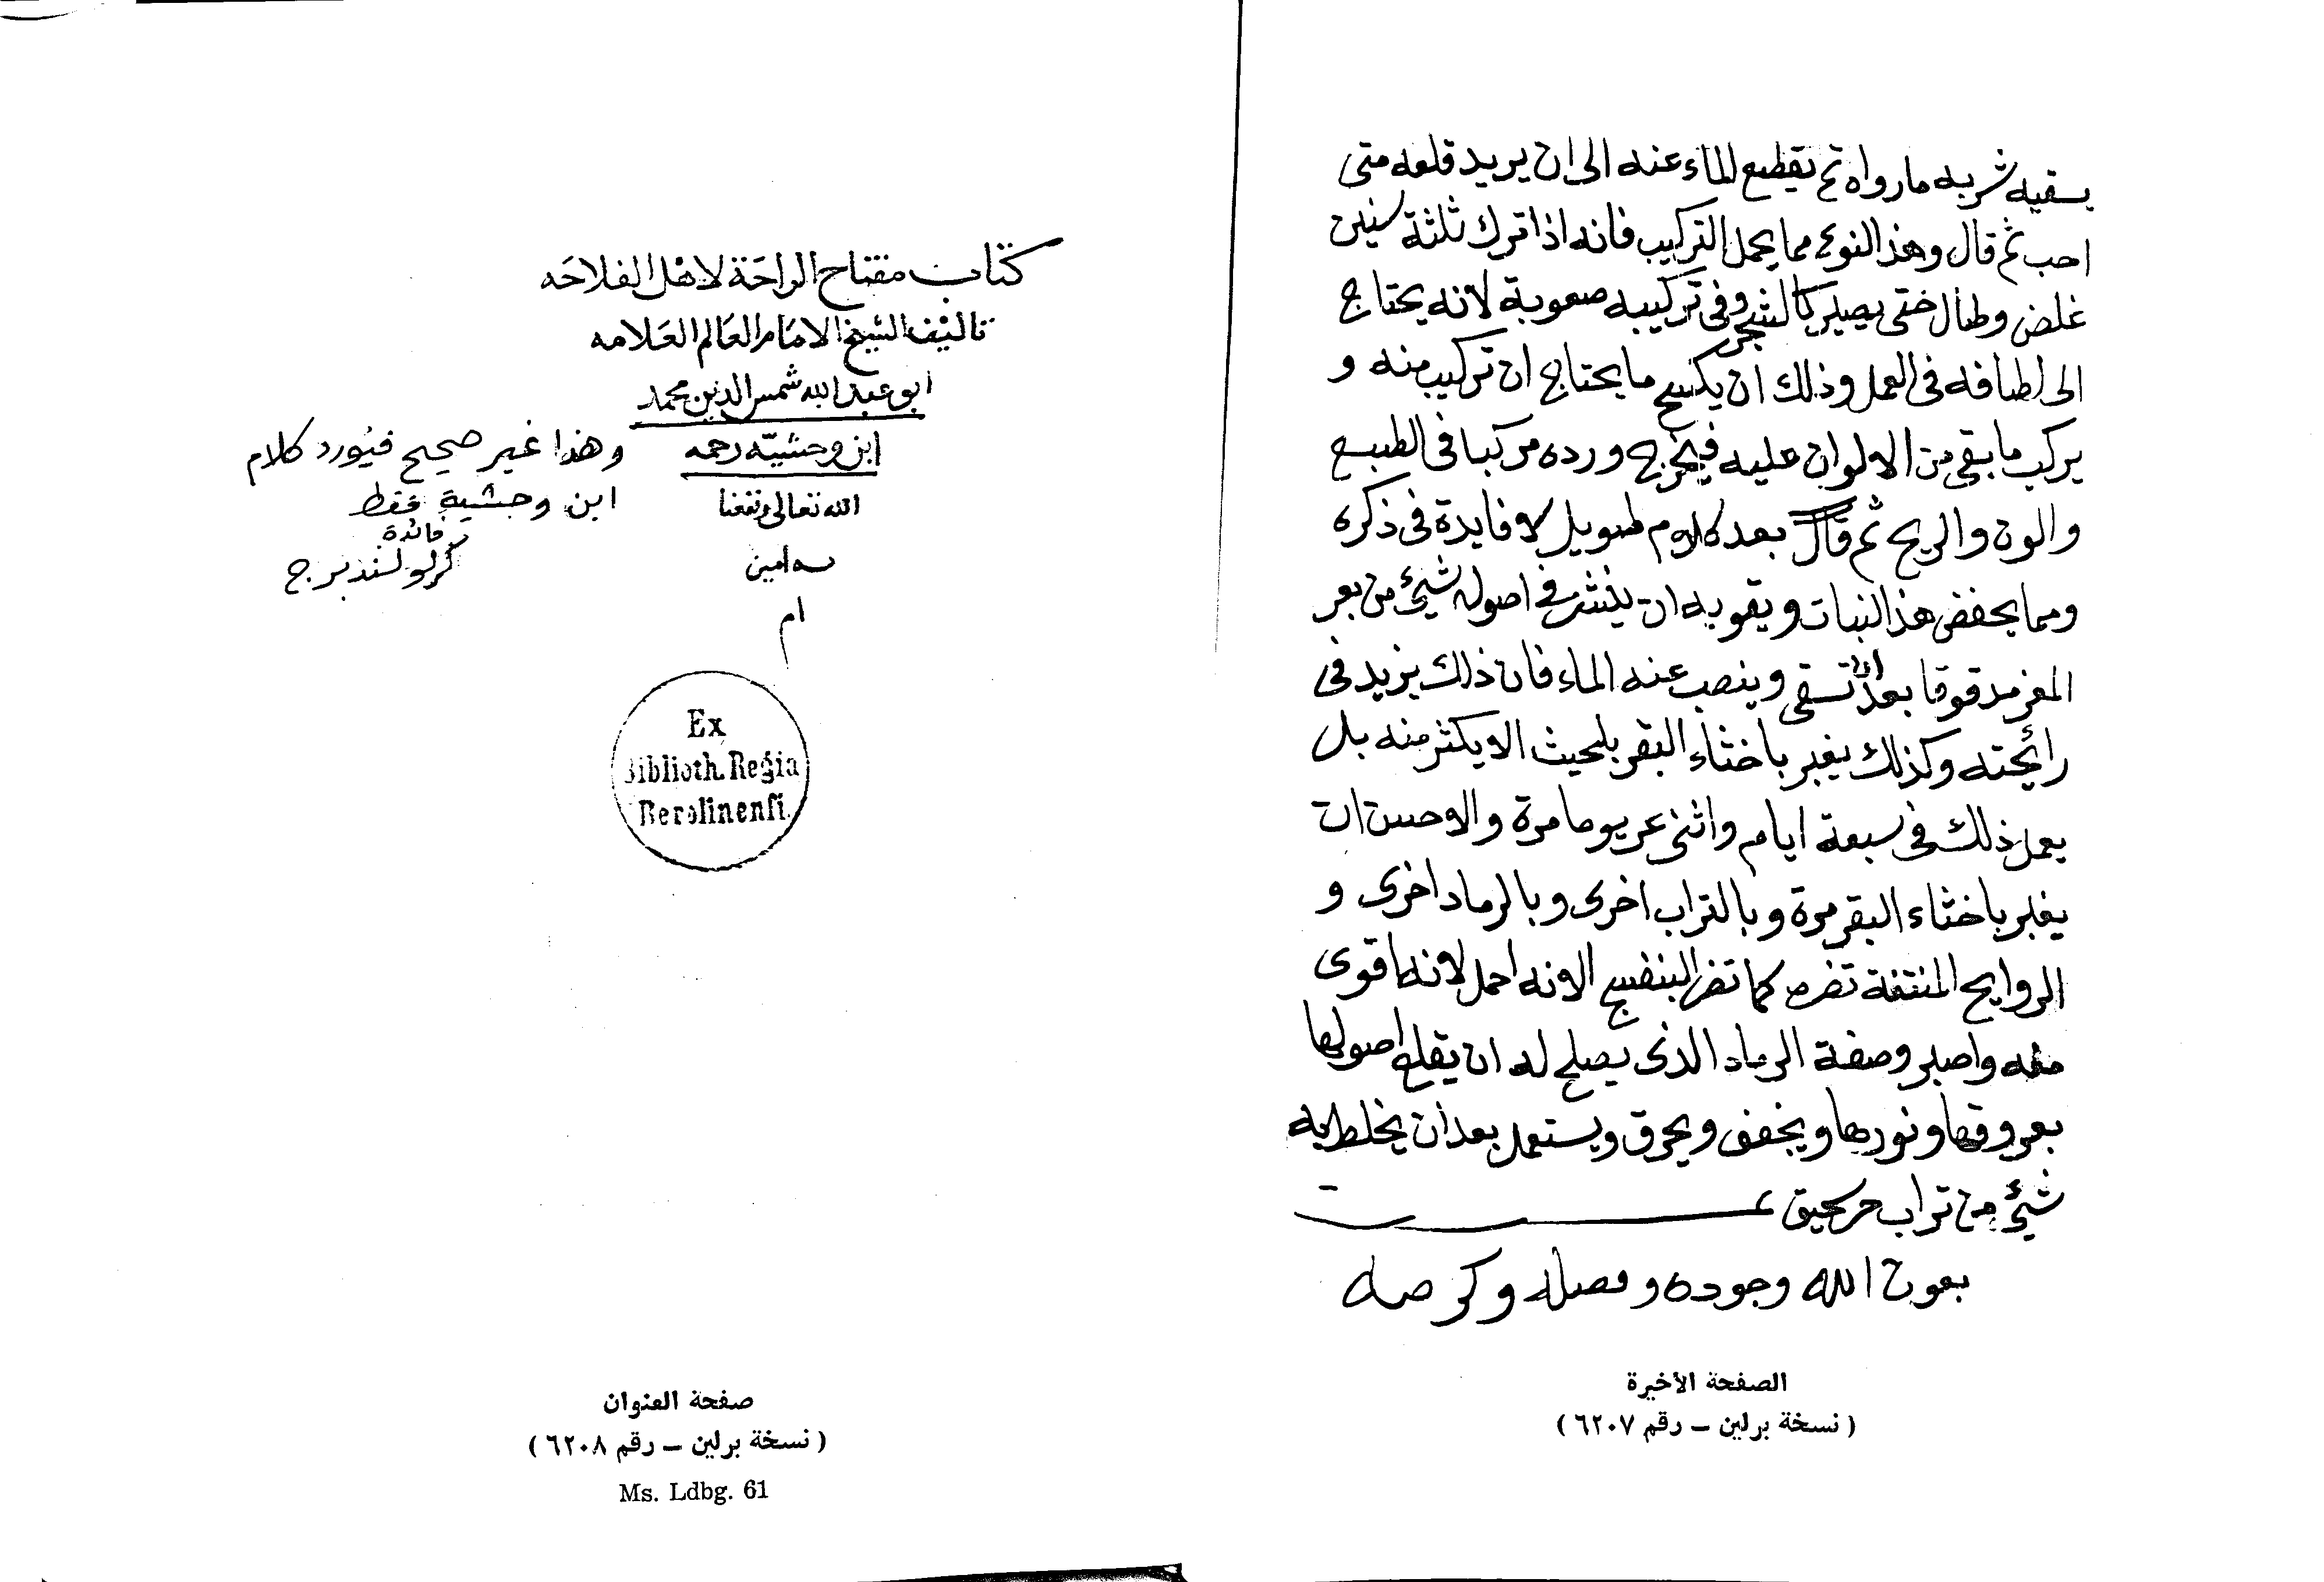 يسقيه شربه ما رواه ثم تقطيع الماء عنه الى ان يريد قلعه متى
احب ثم قال وهذا النوع مما يحمل التركيب فانه اذا ترك ثلثة سنين
غلض وطال حتى يصير كالشجر وفى تركيبه صعوبة لانه يحتاج
الى لطافه فى العمل وذلك ان يكسح ما يحتاج ان تركيب منه و
يركب ما بقى من الالوان عليه فيخرج ورده مركبا فى الطبع
والون والريح ثم قال بعد كلام طويل لا فايدة فى ذكره
ومما يحفض هذا النبات ويقويه ان ينشر فى اصوله شيئ من بعر
المعز مدقوقا بعد ان تسقى وينصب عنه الماء فان ذلك يزيد فى
رائحته وكذلك يغبر باخثاء البقر بلحيث الا يكثر منه بل
يعمل ذلك فى سبعة ايام واثنى عر يوما مرة والاحسن ان
يغبر باخثاء البقر مرة وبالتراب اخرى وبالرماد اخرى و
الروايح المنتنة تضره كما تضر البنفسج الا انه احمل لانه اقوى
منه واصبر وصفة الرماد الذى يصلح له ان يقلع اصولها
بعروقها ونورها ويخفف ويحرق ويستعمل بعد ان يخلط به
شيئ من تراب حر سحيق تمت
بعون الله وجوده وفضله وكرمه
الصفحة الأخيرة
( نسخة برلين – رقم ٦٢٠٧ )
كتاب مفتاح الراحة لاهل الفلاحه
تاليف الشيخ الامام العالم العلامه
ابو عبد الله شمس الدين محمد
ابن وحشيّه رحمه
الله تعالى ونفعنا
به امين
ام
وهذا غير صحيح فيورد كلام
ابن وحشية فقط
فائدة
كرلو لندبرج
Ex
Biblioth. Regia
Berolinensi.
صفحة العنوان
( نسخة برلين – رقم ٦٢٠٨ )
Ms. Ldbg. 61